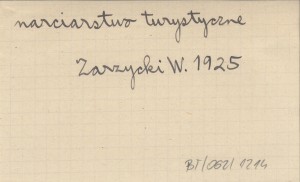 narciarstwo turystyczne
Zarzycki W. 1925
BT/062/1214